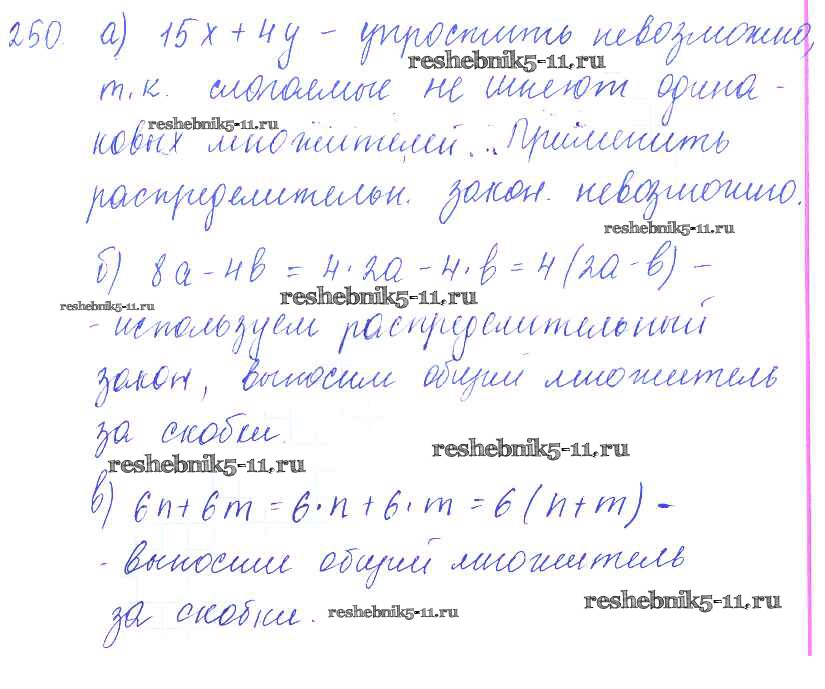 250. а) 15x + 4y - упростить невозможно,
reshebnik5-11.ru
т.к. слагаемые не имеют одина-
reshebnik5-11.ru
ковых множителей. Применить
распределительн. закон. невозможно.
reshebnik5-11.ru
б) 8a - 4b = 4·2a - 4·b = 4(2a-b) -
reshebnik5-11.ru
reshebnik5-11.ru
- используем распределительный
закон, выносим общий множитель
за скобки.
reshebnik5-11.ru
reshebnik5-11.ru
в) 6n + 6m = 6·n + 6·m = 6(n+m) -
- выносим общий множитель
за скобки.
reshebnik5-11.ru
reshebnik5-11.ru